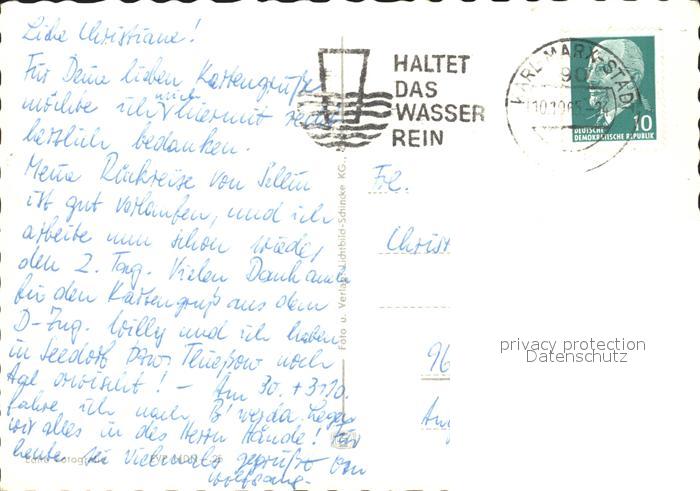 Liebe Christiane!
Für Deine lieben Kartengrüße
möchte ich mich hiermit recht
herzlich bedanken.
Meine Rückreise von Sellin
ist gut verlaufen, und ich
arbeite nun schon wieder
den 2. Tag. Vielen Dank auch
für den Kartengruß aus dem
D-Zug. Willy und ich haben
in Seedorf bzw. Thießow noch
Aal erwischt! – Am 30. + 31.10.
fahre ich nach B'werda. Legen
wir alles in des Herrn Hände! Für
heute sei vielmals gegrüßt von
Wolfgang.
Foto u. Verlag Lichtbild-Schincke KG.,
HALTET
DAS
WASSER
REIN
KARL-MARX-STADT
90
DEUTSCHE
DEMOKRATISCHE REPUBLIK
10
Frl.
Christ
96
privacy protection
Datenschutz